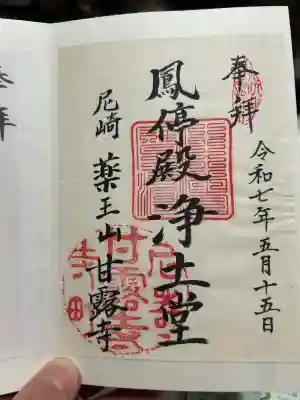 奉拝
令和七年五月十五日
鳳停殿 浄土堂
尼崎 薬王山甘露寺
甘露寺